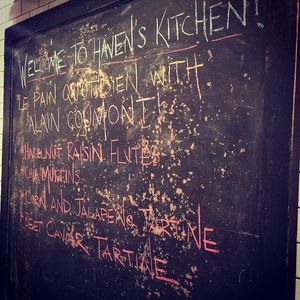 WELCOME TO HAVEN'S KITCHEN!
LE PAIN QUOTIDIEN WITH
ALAIN COUMONT!
HAZELNUT RAISIN FLUTES
CHIA MUFFINS
CORN AND JALAPENO TARTINE
BEET CAVIAR TARTINE